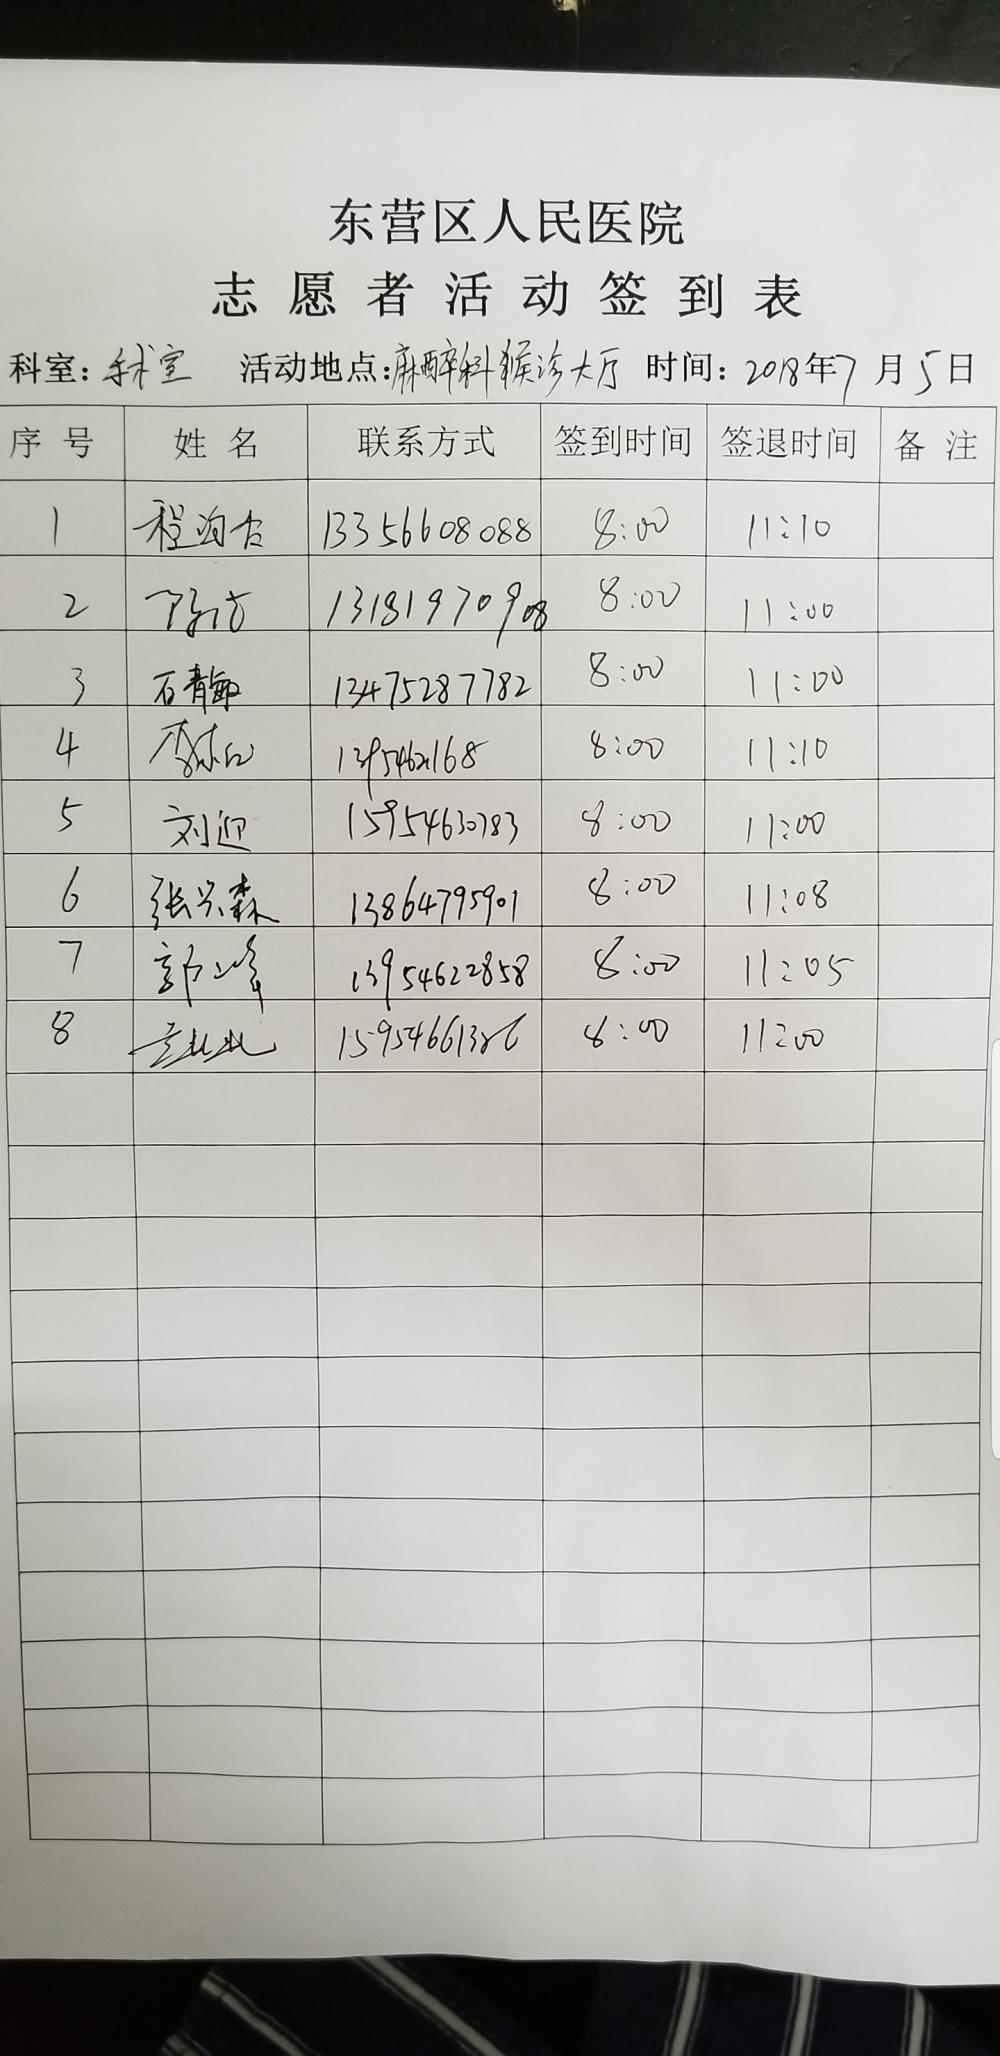 东营区人民医院
志愿者活动签到表
科室:手术室 活动地点:麻醉科猴诊大厅 时间:2018年7月5日
序号 姓名 联系方式 签到时间 签退时间 备注
1 13356608088 8:00 11:10
2 13181970908 8:00 11:00
3 石青敏 13475287782 8:00 11:00
4 8:00 11:10
5 刘迎 15954630783 8:00 11:00
6 张兴森 13864795901 8:00 11:08
7 郭峰 13954622858 8:00 11:05
8 8:00 11:00